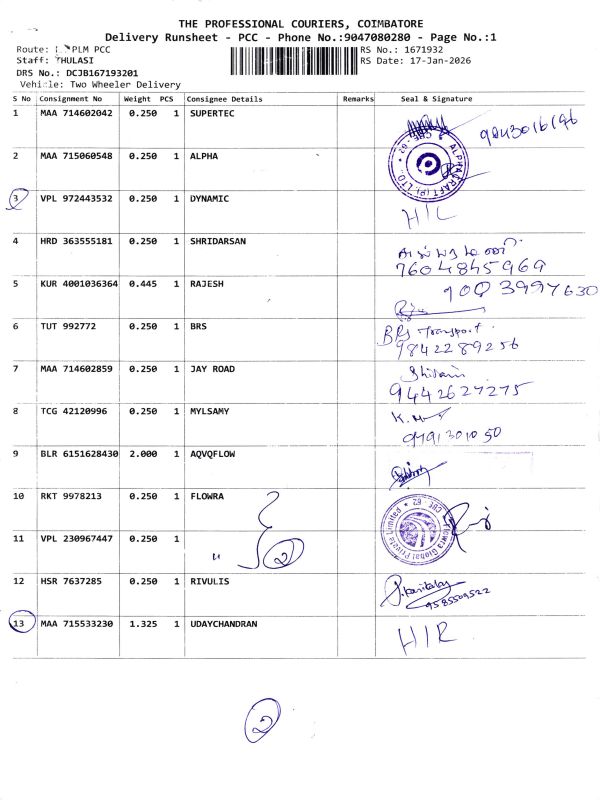 THE PROFESSIONAL COURIERS, COIMBATORE
Delivery Runsheet - PCC - Phone No.:9047080280 - Page No.:1
Route: PLM PCC
RS No.: 1671932
Staff: THULASI
RS Date: 17-Jan-2026
DRS No.: DCJB167193201
Vehicle: Two Wheeler Delivery
S No Consignment No Weight PCS Consignee Details Remarks Seal & Signature
1 MAA 714602042 0.250 1 SUPERTEC
2 MAA 715060548 0.250 1 ALPHA
3 VPL 972443532 0.250 1 DYNAMIC
4 HRD 363555181 0.250 1 SHRIDARSAN
7604845969
5 KUR 4001036364 0.445 1 RAJESH
6 TUT 992772 0.250 1 BRS BRS Transport.
9842289256
7 MAA 714602859 0.250 1 JAY ROAD
9442627275
8 TCG 42120996 0.250 1 MYLSAMY
9791301050
9 BLR 6151628430 2.000 1 AQVQFLOW
10 RKT 9978213 0.250 1 FLOWRA
Flowra Global Private Limited * CBE-62 *
11 VPL 230967447 0.250 1 " 2
12 HSR 7637285 0.250 1 RIVULIS
9585509522
13 MAA 715533230 1.325 1 UDAYCHANDRAN H/R
2